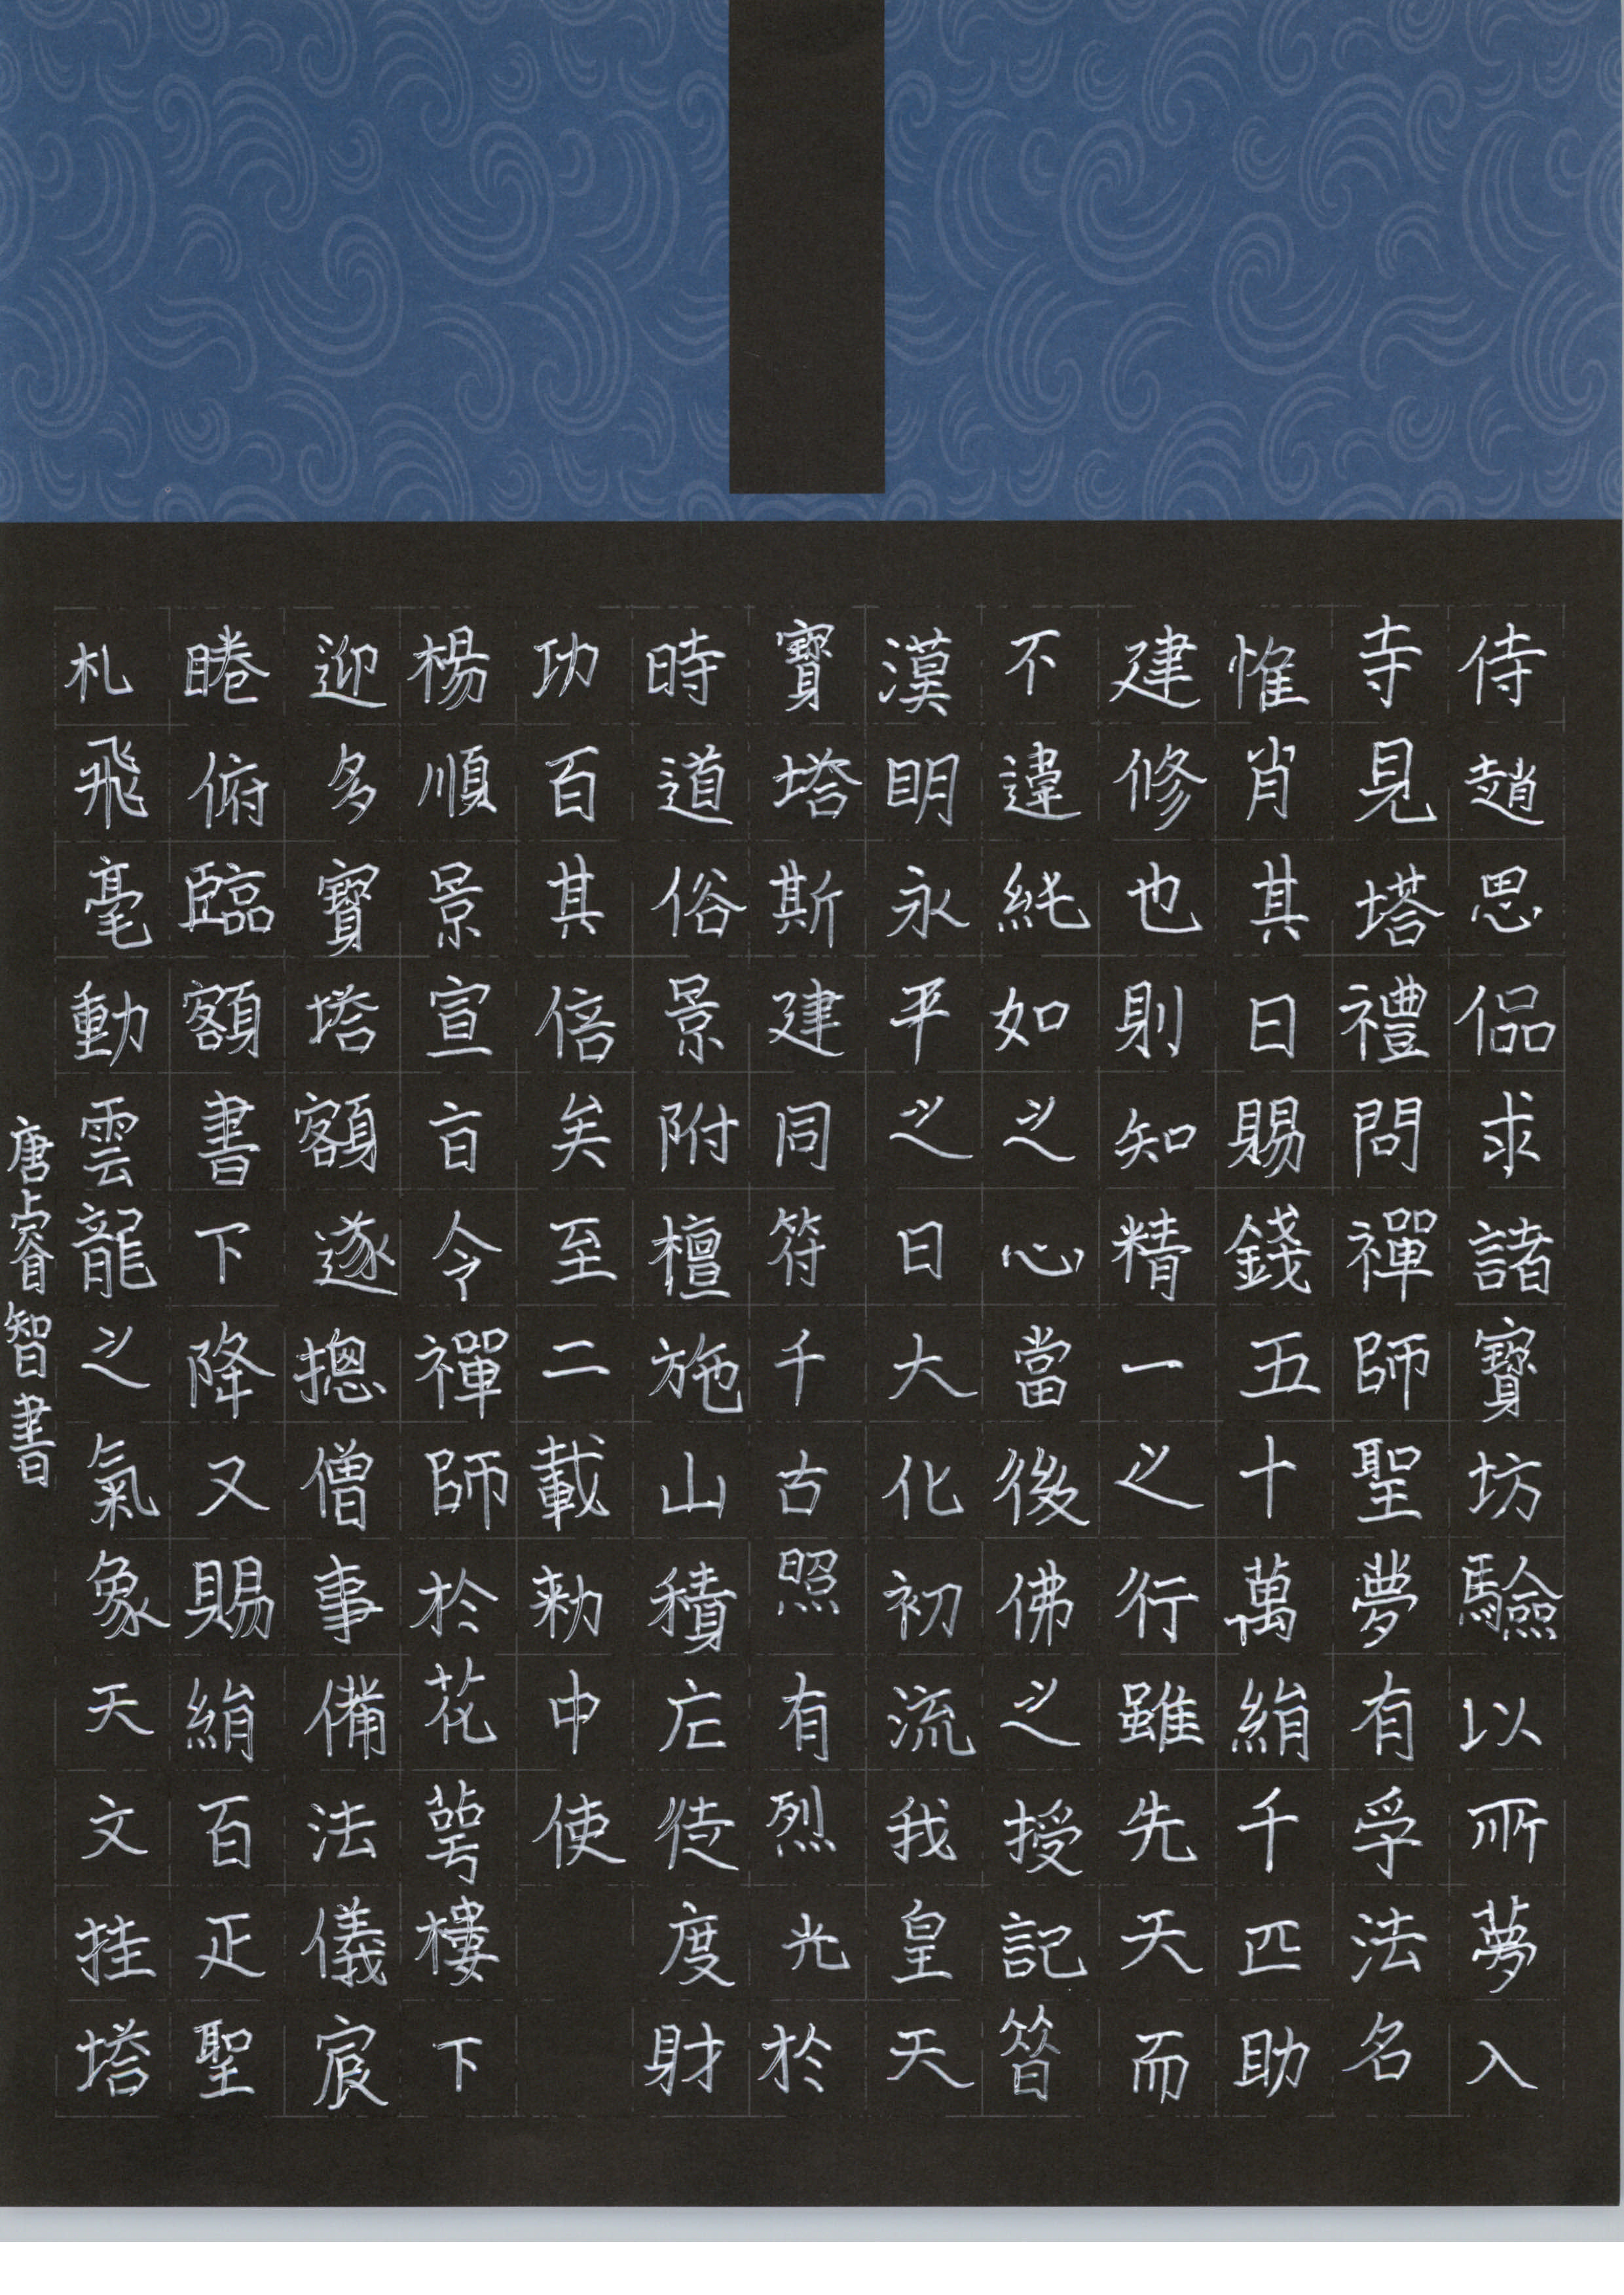 侍趙思侶求諸寶坊驗以所夢入
寺見塔禮問禪師聖夢有孚法名
惟肖其日賜錢五十萬絹千匹助
建修也則知精一之行雖先天而
不違純如之心當後佛之授記昝
漢明永平之日大化初流我皇天
寶塔斯建同符千古照有烈光於
時道俗景附檀施山積庀徒度財
功百其倍矣至二載勑中使
楊順景宣㫖令禪師於花萼樓下
迎多寶塔額遂揔僧事備法儀宸
睠俯臨額書下降又賜絹百疋聖
札飛毫動雲龍之氣象天文挂塔
唐睿智書